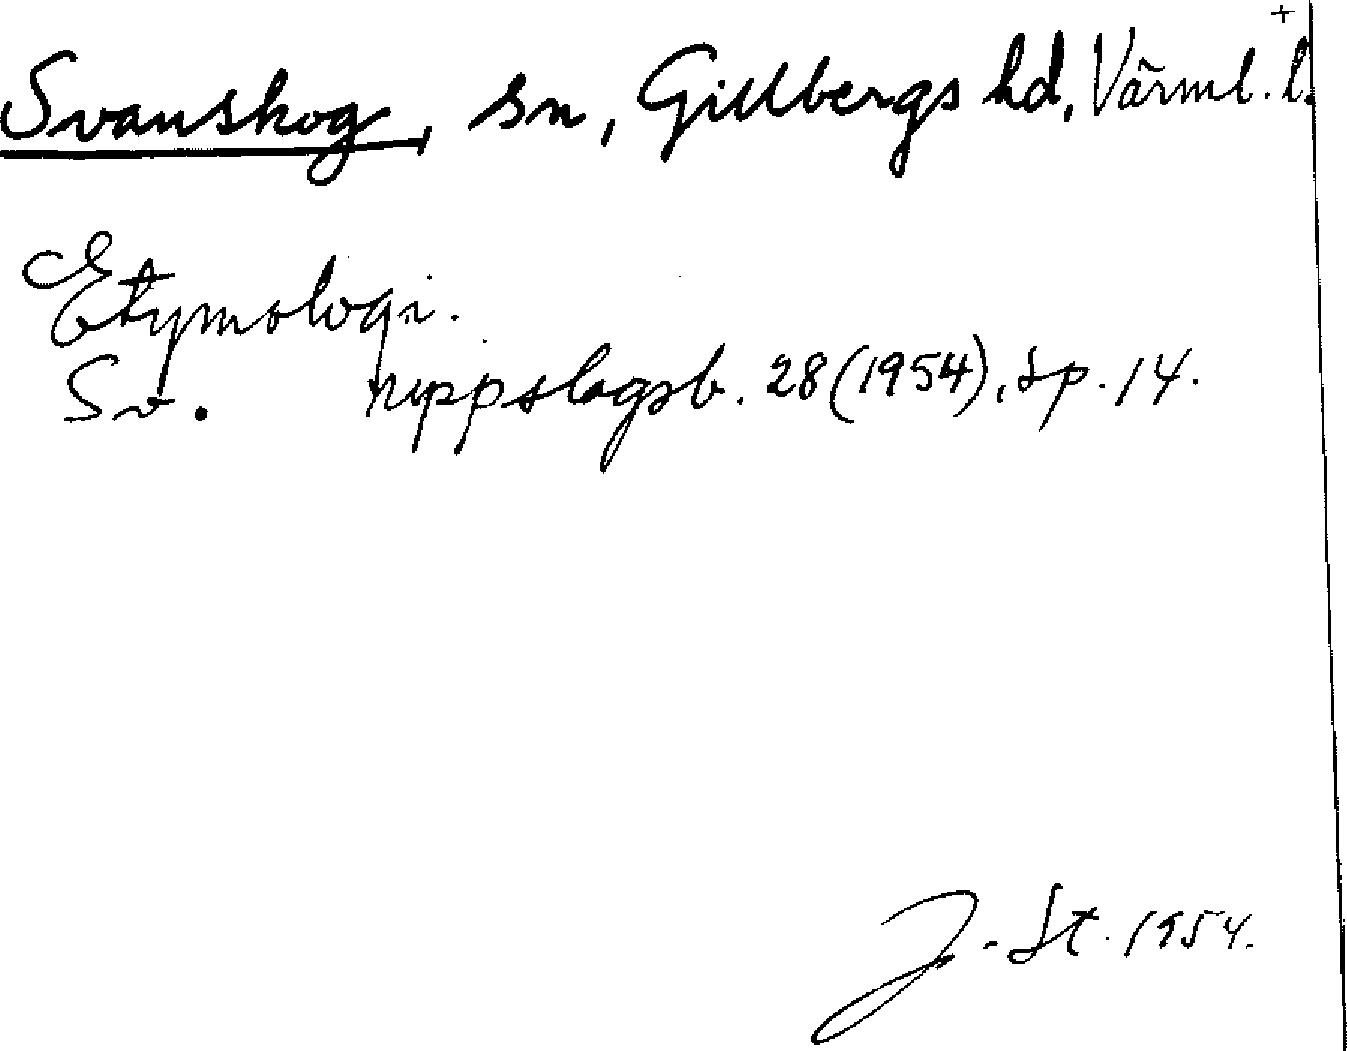 Svanskog, sn, Gillbergs hd, Värml. l.
Etymologi.
Sv. uppslagsb. 28 (1954), sp. 14.
J. St. 1954.